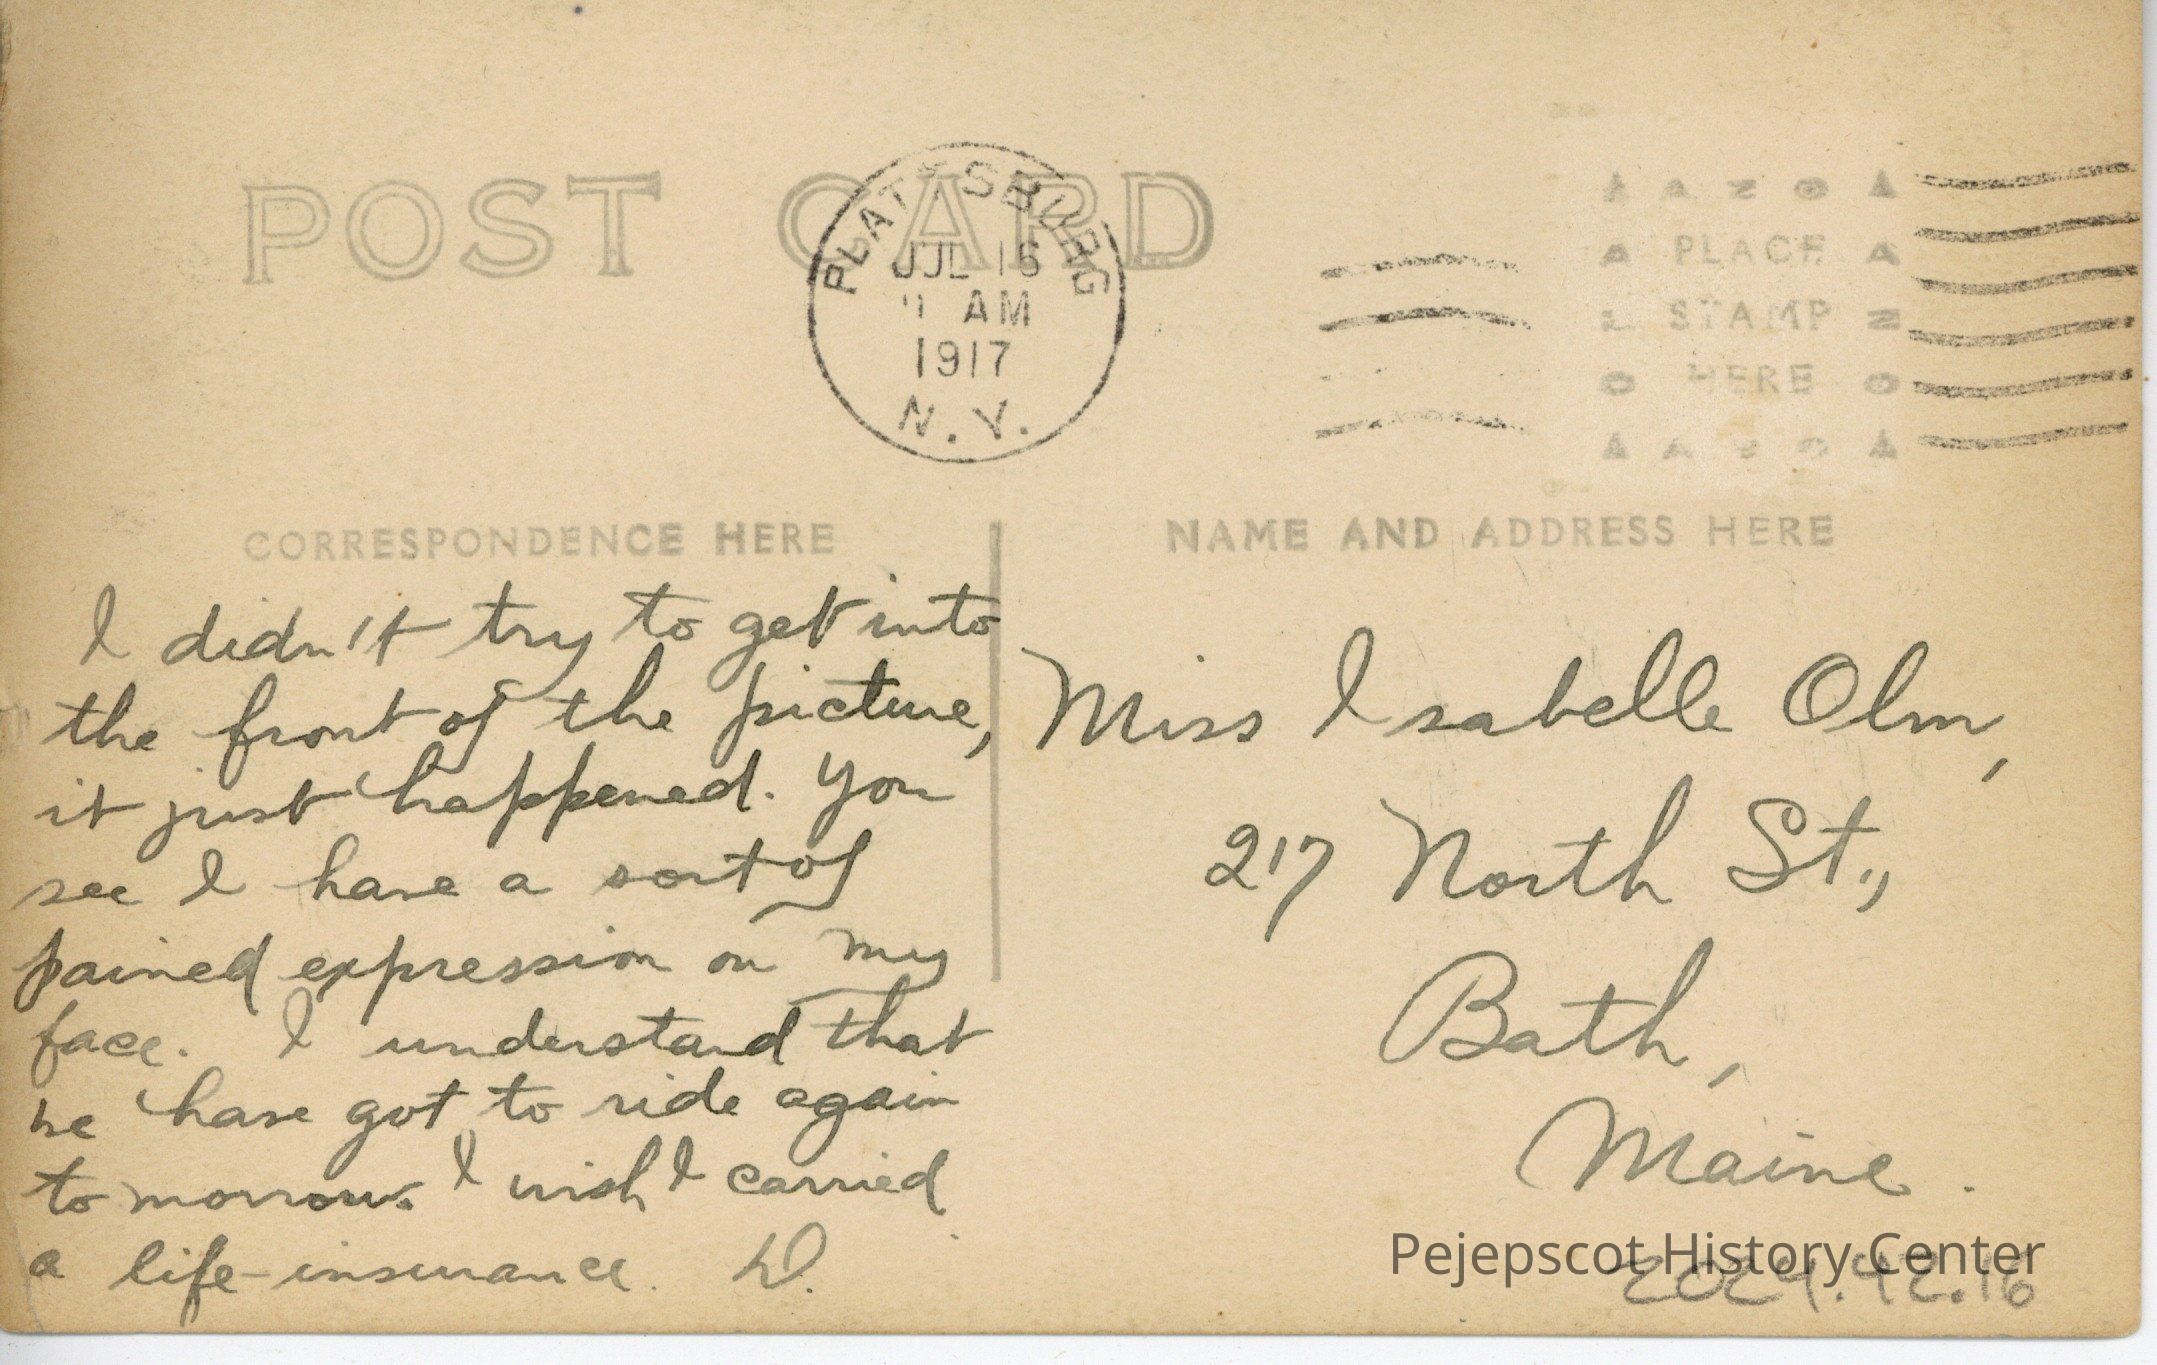 POST CARD
PLATTSBURG
JUL 16
AM
1917
N.Y.
AZO
PLACE
STAMP
HERE
AZO
CORRESPONDENCE HERE
NAME AND ADDRESS HERE
I didn't try to get into
the front of the picture,
it just happened. You
see I have a sort of
pained expression on my
face. I understand that
we have got to ride again
to morrow. I wish I carried
a life-insurance. D.
Miss Isabelle Olm,
217 North St.,
Bath,
Maine.
Pejepscot History Center
2024.42.16